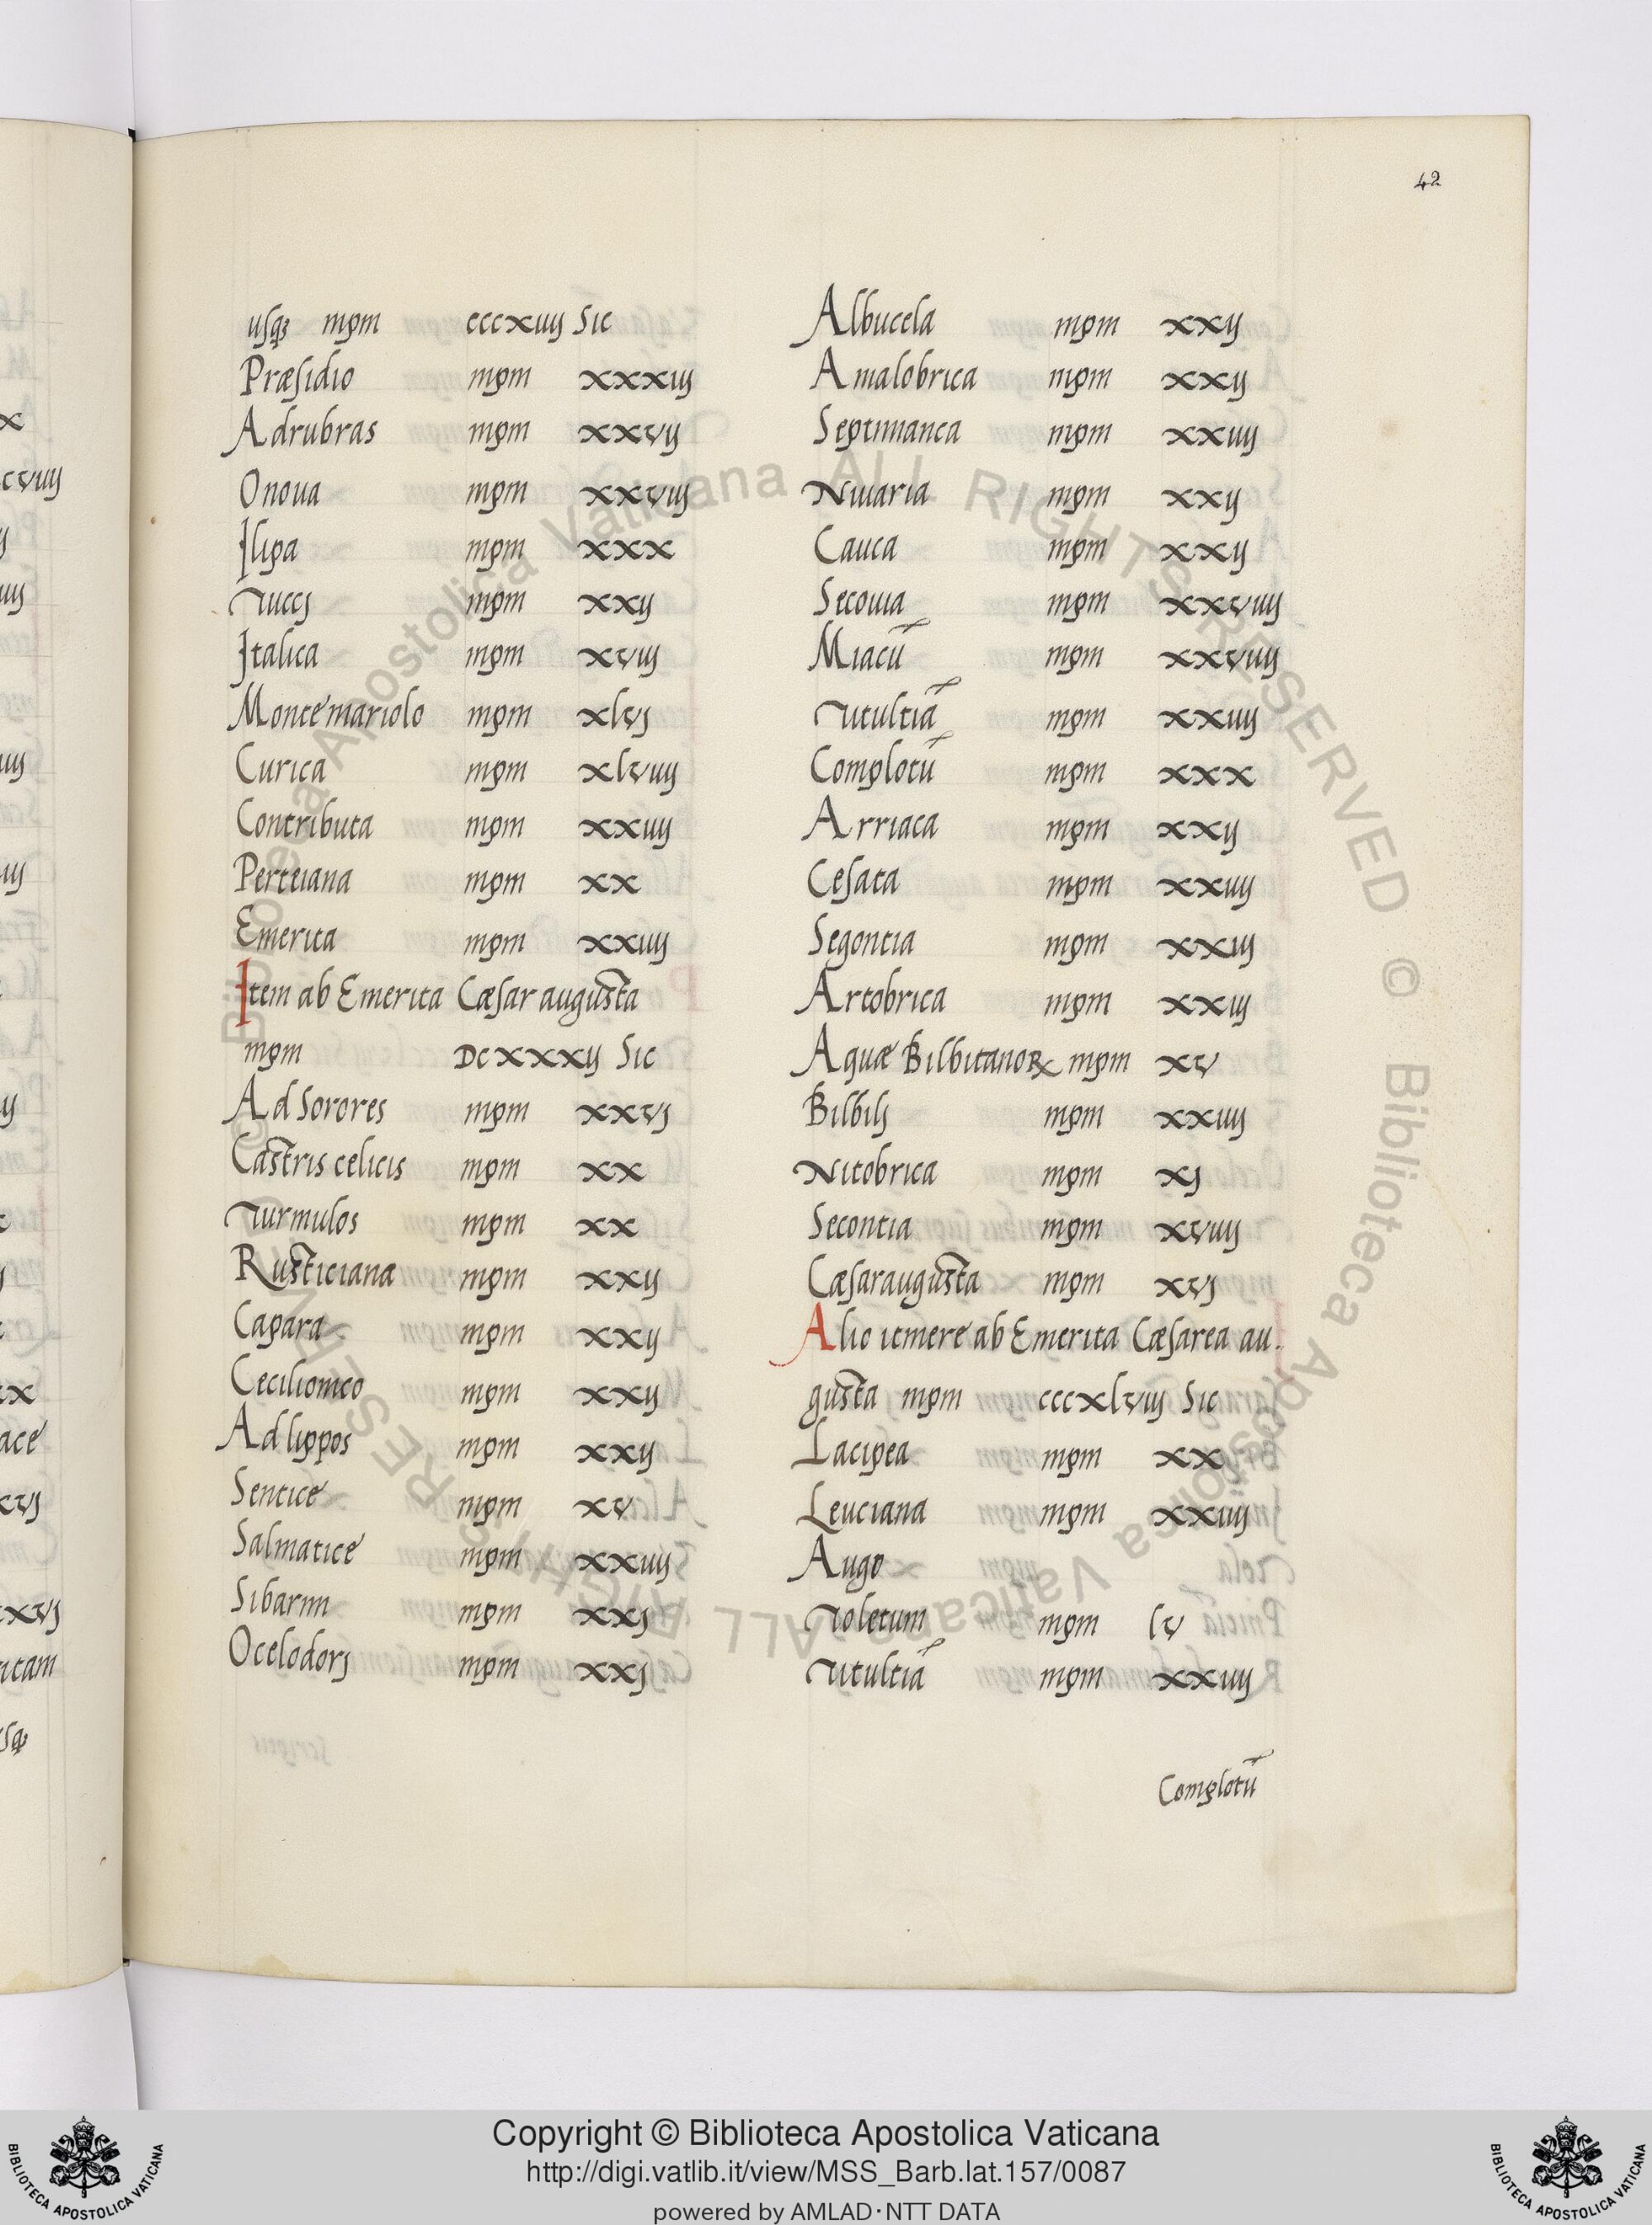 42
usq; mpm cccxiiij Sic
Præsidio mpm xxxiij
Adrubras mpm xxvij
Onoua mpm xxviij
Ilipa mpm xxx
Tucci mpm xxij
Italica mpm xviij
Monte mariolo mpm xlvj
Curica mpm xlviiij
Contributa mpm xxiiij
Perteiana mpm xx
Emerita mpm xxiiij
Item ab Emerita Cæsar augusta
mpm Dcxxxij Sic
Ad Sorores mpm xxvj
Castris celicis mpm xx
Turmulos mpm xx
Rusticiana mpm xxij
Capara mpm xxij
Cecilionico mpm xxij
Ad lippos mpm xxij
Sentice mpm xv
Salmatice mpm xxiiij
Sibarim mpm xxj
Ocelodorj mpm xxj
Albucela mpm xxij
Amalobrica mpm xxij
Septimanca mpm xxiiij
Niuaria mpm xxij
Cauca mpm xxij
Secouia mpm xxviiij
Miacū mpm xxviiij
Titultiā mpm xxiiij
Complotū mpm xxx
Arriaca mpm xxij
Cesata mpm xxiiij
Segontia mpm xxiij
Artobrica mpm xxiij
Aquæ Bilbitanoꝝ mpm xv
Bilbilj mpm xxiiij
Nitobrica mpm xj
Secontia mpm xviiij
Cæsaraugusta mpm xvj
Alio itinere ab Emerita Cæsarea au.
gusta mpm cccxlviij Sic
Lacipea mpm xx
Leuciana mpm xxiiij
Augo
Toletum mpm lv
Titultiā mpm xxiiij
Complotū
© Biblioteca Apostolica Vaticana ALL RIGHTS RESERVED
© Biblioteca Apostolica Vaticana ALL RIGHTS RESERVED
BIBLIOTECA APOSTOLICA VATICANA
Copyright © Biblioteca Apostolica Vaticana
http://digi.vatlib.it/view/MSS_Barb.lat.157/0087
powered by AMLAD·NTT DATA
BIBLIOTECA APOSTOLICA VATICANA